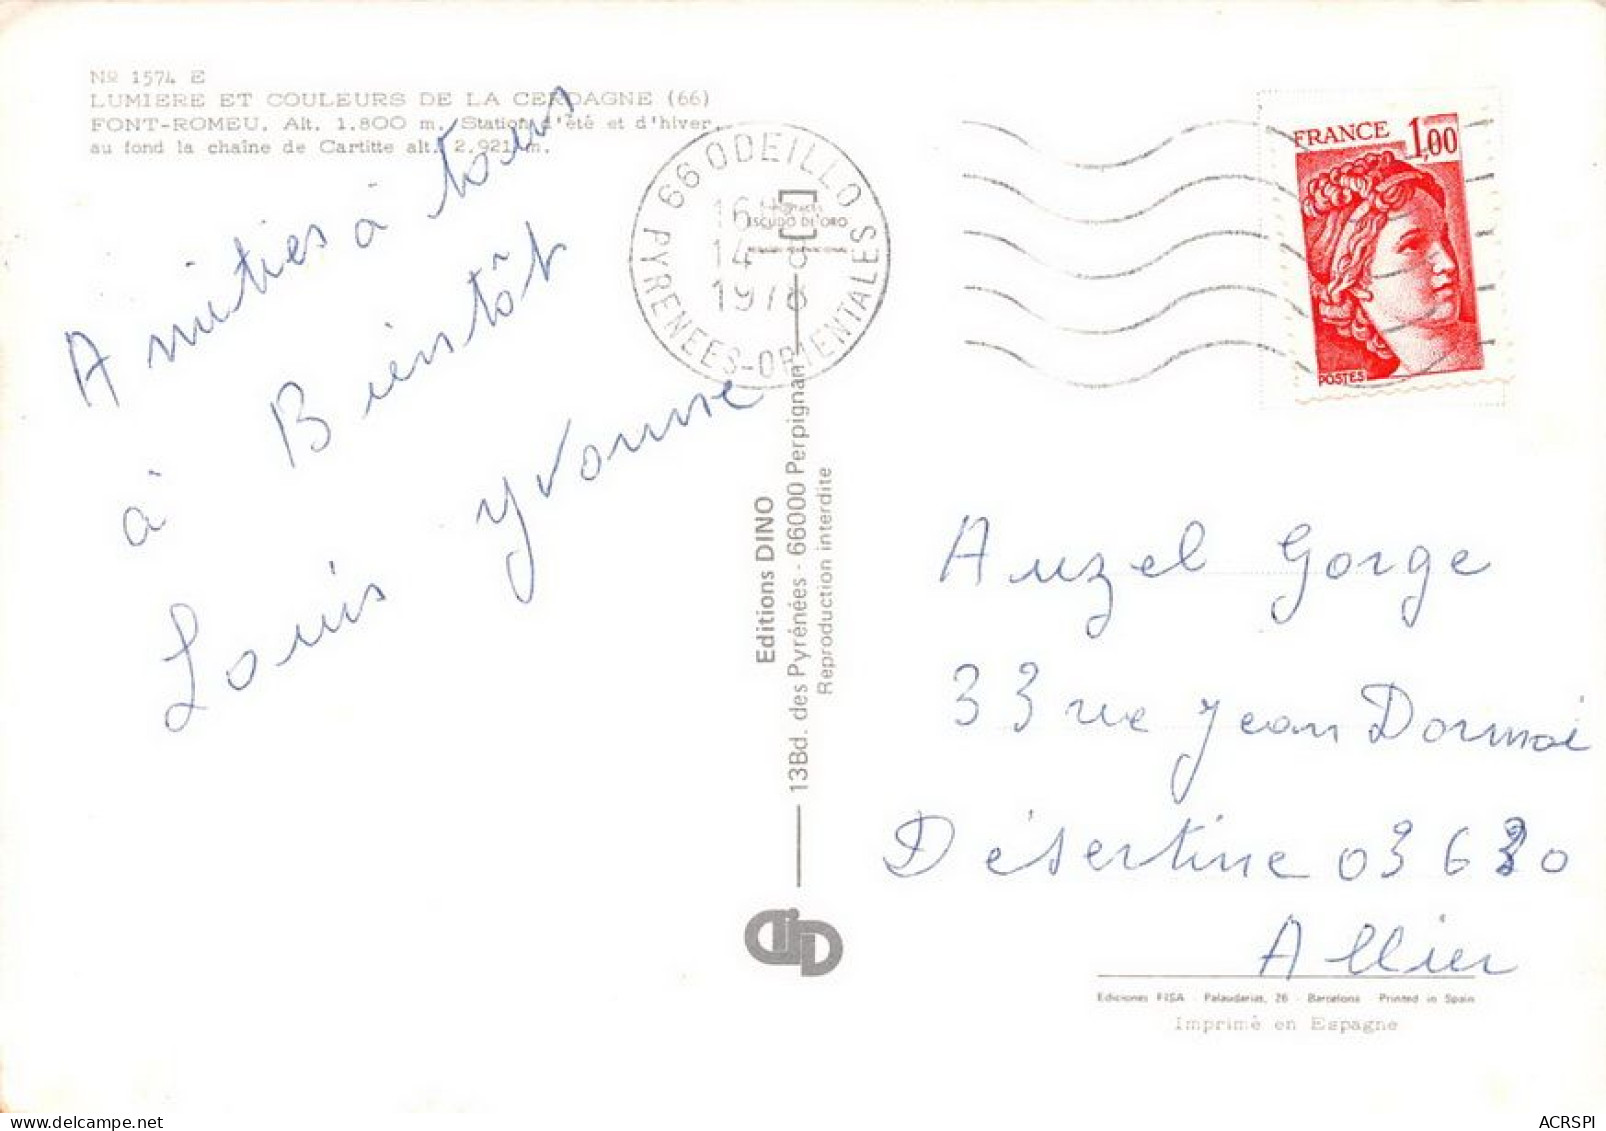 Nº 1574 E
LUMIERE ET COULEURS DE LA CERDAGNE (66)
FONT-ROMEU. Alt. 1.800 m. Station d'été et d'hiver
au fond la chaîne de Cartitte alt. 2.921 m.
Amitiés à tous
à Bientôt
Louis yvonne
66 ODEILLO
PYRENEES-ORIENTALES
14
1978
ESCUDO DE ORO
Editions DINO
13Bd. des Pyrénées - 66000 Perpignan
Reproduction interdite
FRANCE 1,00
POSTES
Auzel Gorge
33 rue Jean Dormoi
Désertine 03630
Allier
Ediciones FISA - Palaudarias, 26 - Barcelona - Printed in Spain
Imprimé en Espagne
ACRSPI